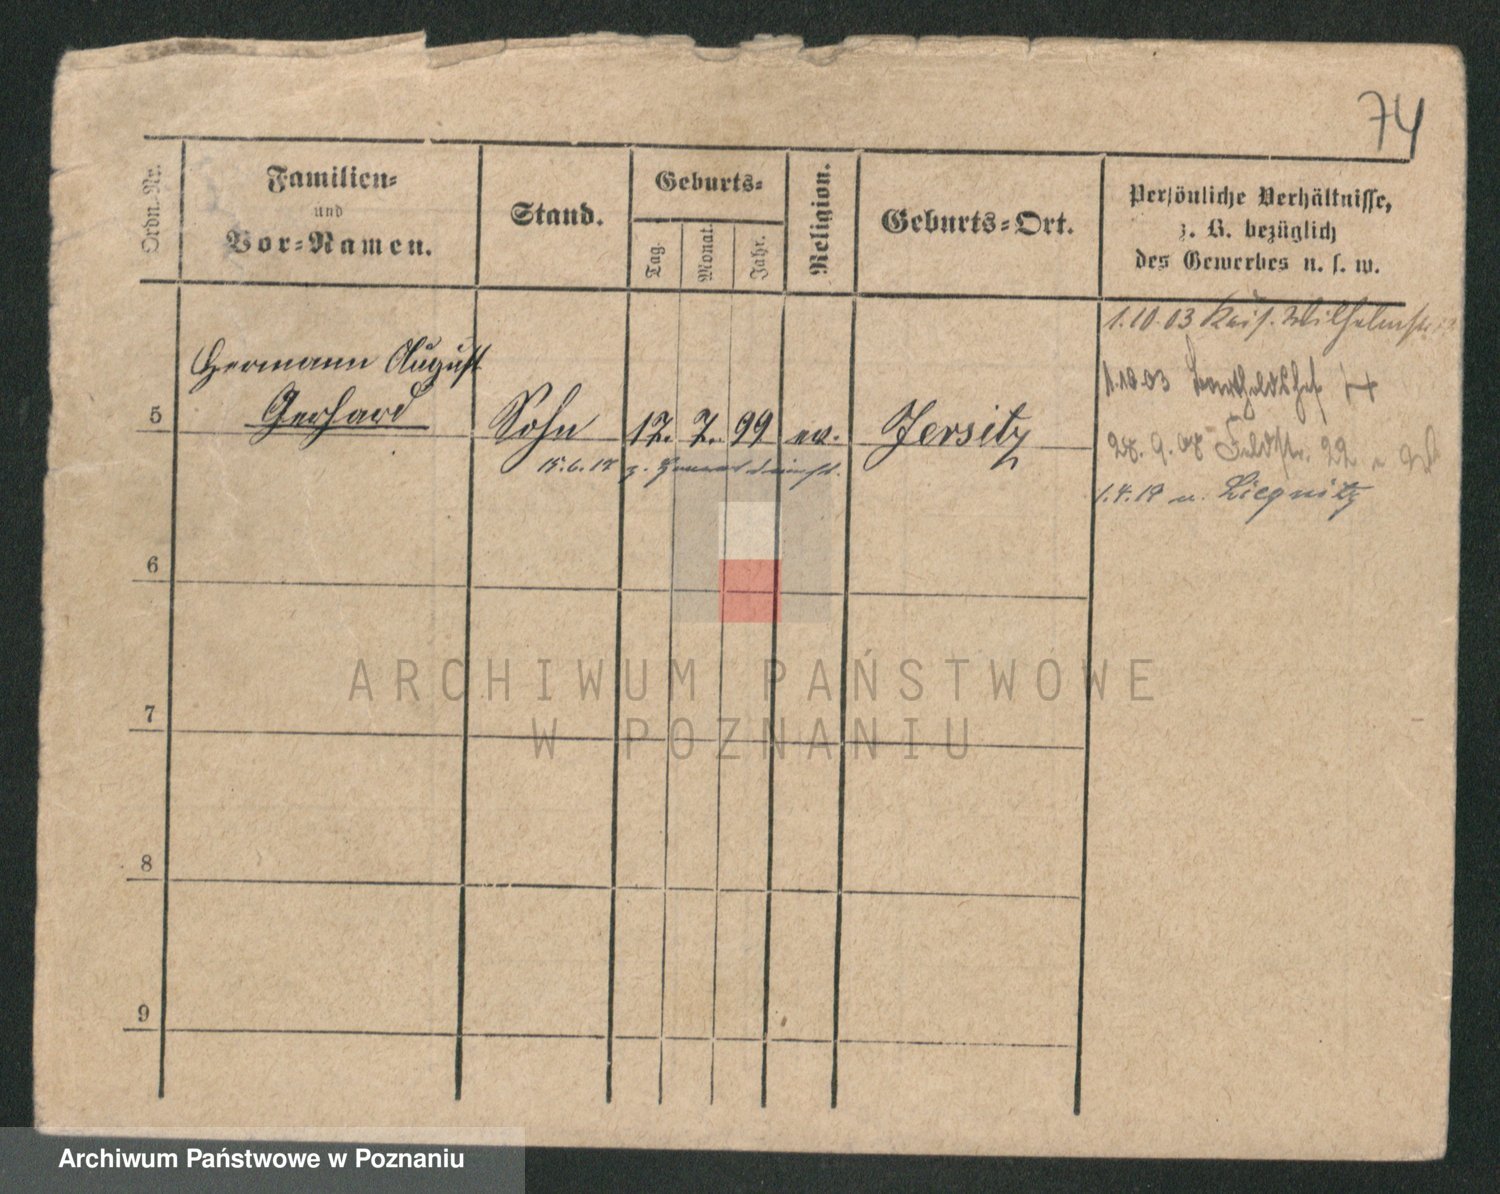 74
Ordn. Nr.
Familien-
und
Vor-Namen.
Stand.
Geburts-
Tag.
Monat.
Jahr.
Religion.
Geburts-Ort.
Persönliche Verhältnisse,
z. B. bezüglich
des Gewerbes u. s. w.
1.10.03 Kais. Wilhelmstr.
1.10.03
28. 9. 08 Feldstr. 22
1.4.19 n. Liegnitz
Hermann August
5 Gerhard Sohn 12. 7. 99 ev. Jersitz
15.6.17 z.
6
7
8
9
ARCHIWUM PAŃSTWOWE
W POZNANIU
Archiwum Państwowe w Poznaniu